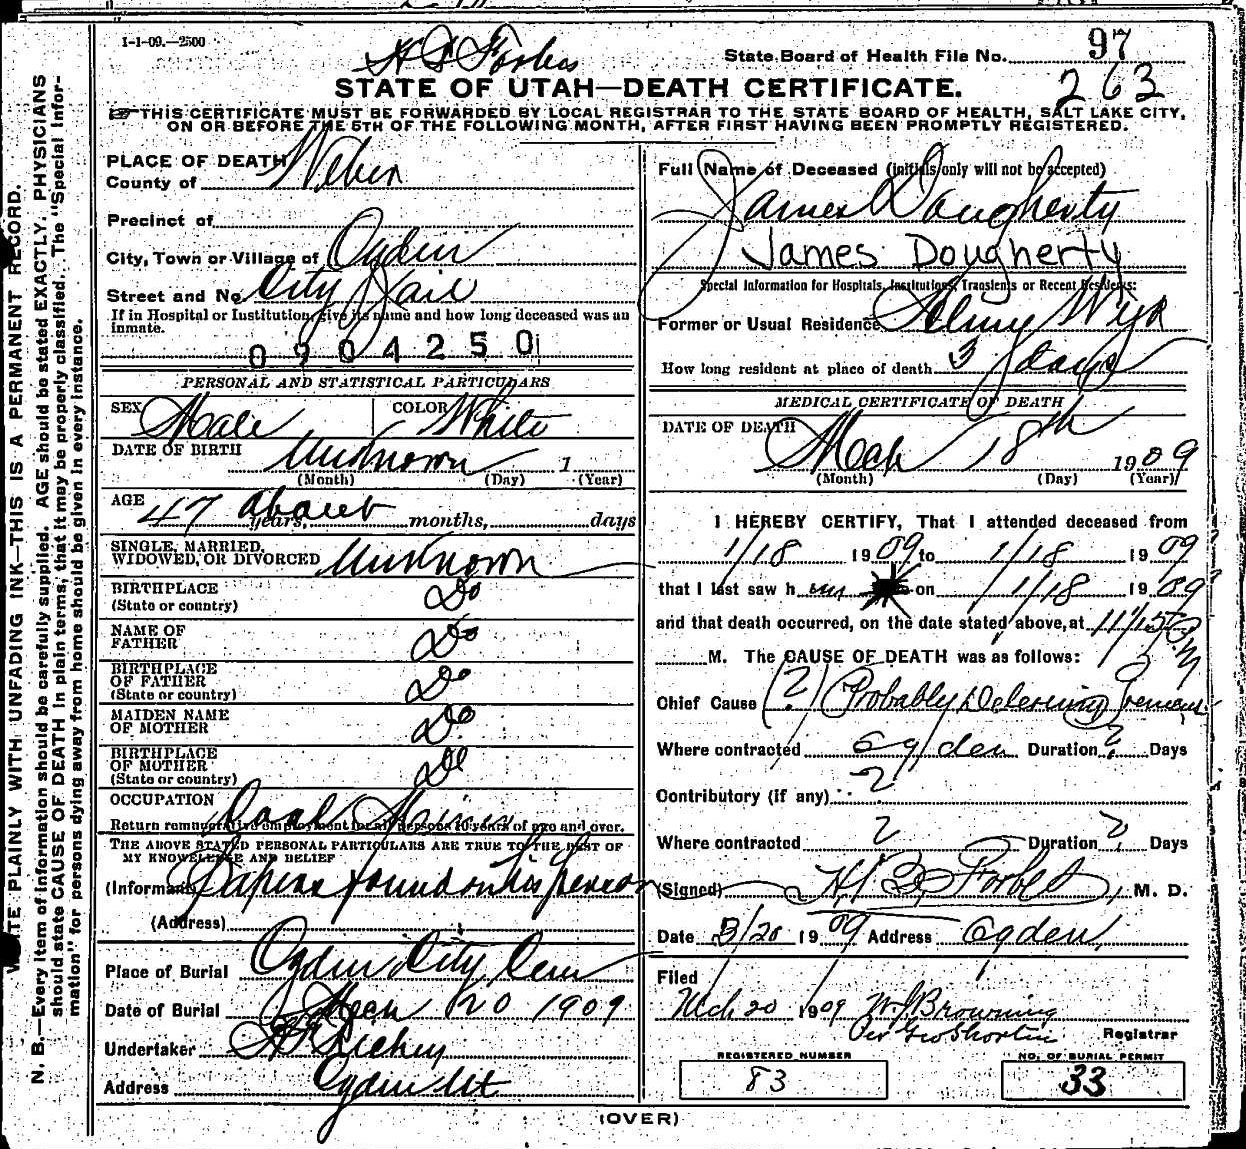 1-1-09.—2500
State Board of Health File No. 97
263
STATE OF UTAH—DEATH CERTIFICATE.
THIS CERTIFICATE MUST BE FORWARDED BY LOCAL REGISTRAR TO THE STATE BOARD OF HEALTH, SALT LAKE CITY,
ON OR BEFORE THE 5TH OF THE FOLLOWING MONTH, AFTER FIRST HAVING BEEN PROMPTLY REGISTERED.
PLACE OF DEATH
County of Weber
Precinct of
City, Town or Village of Ogden
Street and No. City Jail
If in Hospital or Institution, give its name and how long deceased was an
inmate.
0904250
PERSONAL AND STATISTICAL PARTICULARS
SEX Male COLOR White
DATE OF BIRTH Unknown 1
(Month) (Day) (Year)
AGE 47 about years, months, days
SINGLE, MARRIED,
WIDOWED, OR DIVORCED Unknown
BIRTHPLACE
(State or country) Do
NAME OF
FATHER Do
BIRTHPLACE
OF FATHER
(State or country) Do
MAIDEN NAME
OF MOTHER Do
BIRTHPLACE
OF MOTHER
(State or country) Do
OCCUPATION Coal Miner
Return remunerative employment for all persons 10 years of age and over.
THE ABOVE STATED PERSONAL PARTICULARS ARE TRUE TO THE BEST OF
MY KNOWLEDGE AND BELIEF
(Informant) Papers found on his person
(Address)
Place of Burial Ogden City Cem
Date of Burial Mch 20 1909
Undertaker
Address Ogden Ut
Full Name of Deceased (initials only will not be accepted)
James Dougherty
James Dougherty
Special Information for Hospitals, Institutions, Transients or Recent Residents:
Former or Usual Residence
How long resident at place of death 3 days
MEDICAL CERTIFICATE OF DEATH
DATE OF DEATH
Mch 18th 1909
(Month) (Day) (Year)
I HEREBY CERTIFY, That I attended deceased from
1/18 1909 to 1/18 1909
that I last saw him on 1/18 1909
and that death occurred, on the date stated above, at 11:15 P.M
M. The CAUSE OF DEATH was as follows:
Chief Cause (?) Probably Delerium Tremens
Where contracted Ogden Duration ? Days
Contributory (if any) ?
Where contracted ? Duration ? Days
(Signed) H. B. Forbes, M. D.
Date 3/20 1909 Address Ogden,
Filed
Mch 20 1909 W. J. Browning
Per Geo Shorten Registrar
REGISTERED NUMBER
83
NO. OF BURIAL PERMIT
33
(OVER)
WRITE PLAINLY WITH UNFADING INK—THIS IS A PERMANENT RECORD.
N. B.—Every item of information should be carefully supplied. AGE should be stated EXACTLY. PHYSICIANS
should state CAUSE OF DEATH in plain terms, that it may be properly classified. The "Special Infor-
mation" for persons dying away from home should be given in every instance.